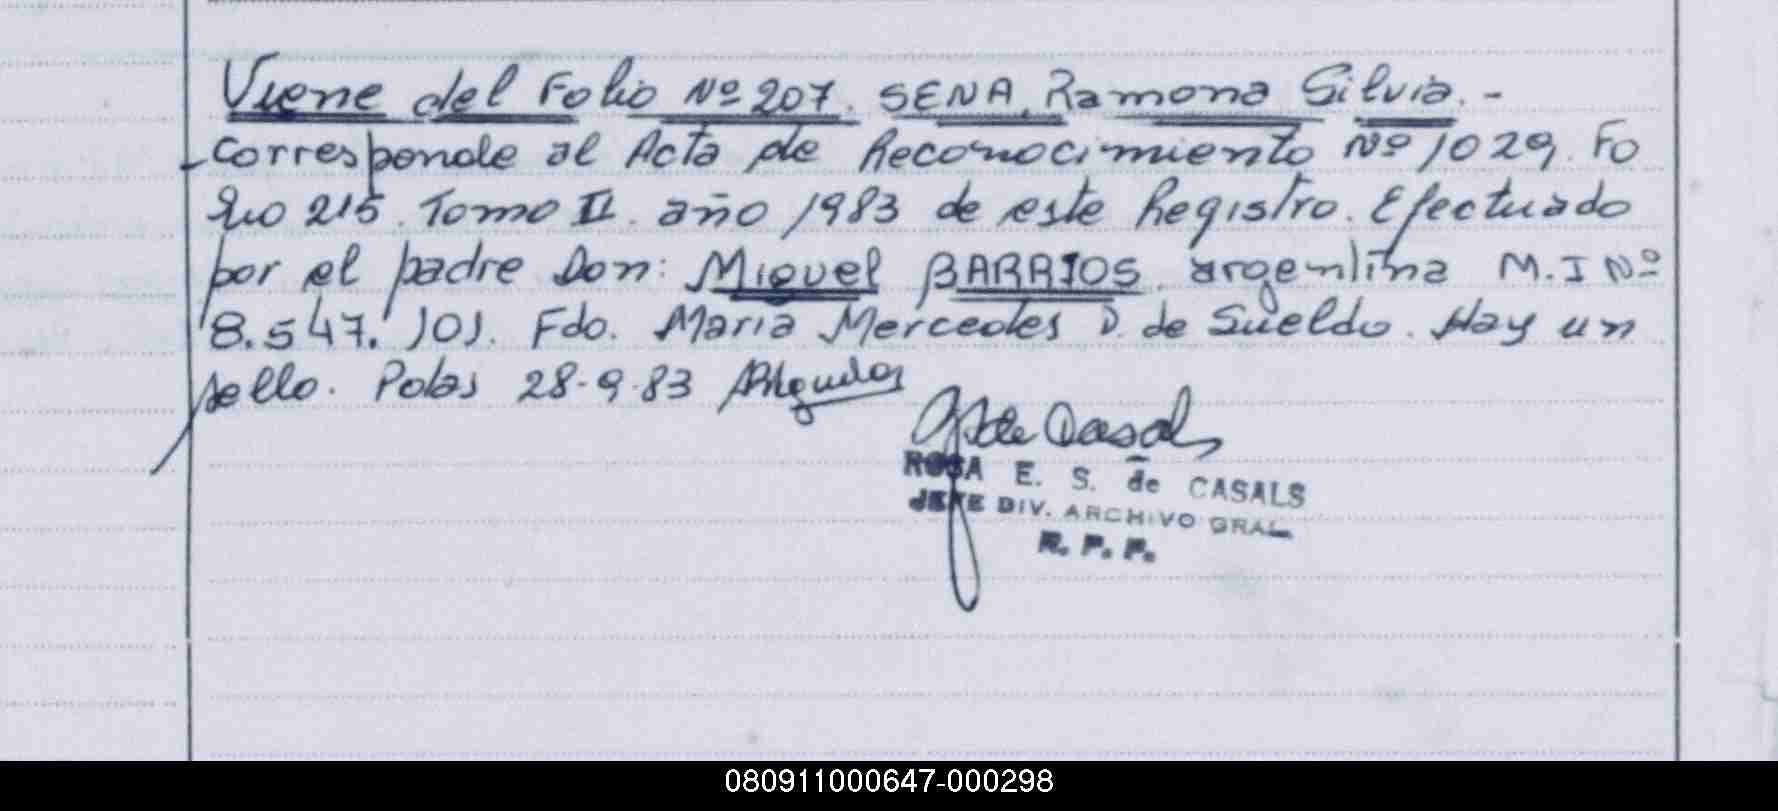 Viene del Folio Nº 207. SENA, Ramona Silvia. -
Corresponde al Acta de Reconocimiento Nº 1029. Fo
lio 215. Tomo II. año 1983 de este Registro. Efectuado
por el padre Don: Miguel BARRIOS. argentina M.I Nº
8.547.101. Fdo. Maria Mercedes D. de Sueldo. Hay un
sello. Pdas 28-9-83
de Casals
ROSA E. S. de CASALS
JEFE DIV. ARCHIVO GRAL.
R. P. P.
080911000647-000298